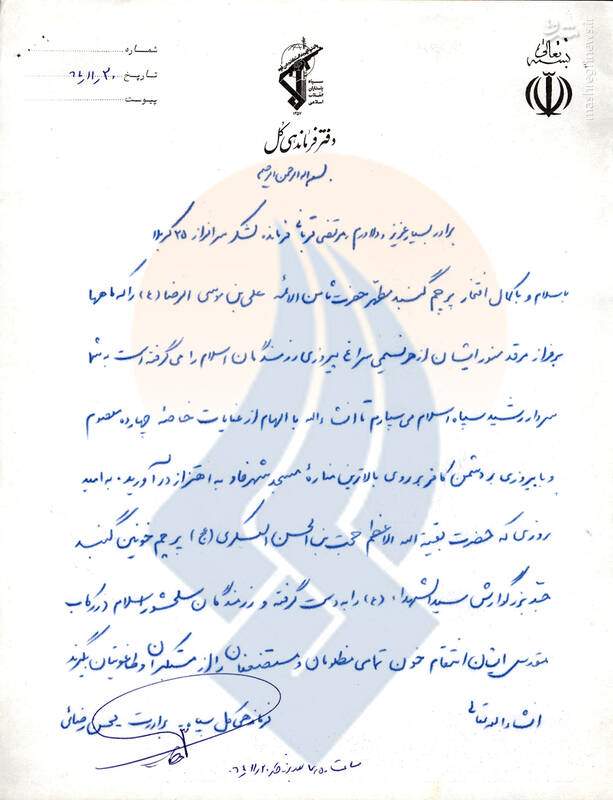 بسمه تعالی
شماره
تاریخ ۶۴،۱۱،۲۰
پیوست
سپاه
پاسداران
انقلاب
اسلامی
دفتر فرماندهی کل
بسم الله الرحمن الرحیم
برادر بسیار عزیز و دلاورم مرتضی قربانی فرمانده لشکر سرافراز ۲۵ کربلا
با سلام و با کمال افتخار پرچم گنبد مطهر حضرت ثامن الائمه علی بن موسی الرضا (ع) را که ماهها
بر فراز مرقد منور ایشان از هر نسیمی سراغ پیروزی رزمندگان اسلام را می گرفته است به شما
سردار رشید سپاه اسلام می سپارم تا انشاءالله با الهام از عنایات خاصه چهارده معصوم
و با پیروزی بر دشمن کافر بر روی بالاترین مناره مسجد شهر فاو به اهتزاز در آورید. به امید
روزی که حضرت بقیة الله الاعظم حجت بن الحسن العسکری (عج) پرچم خونین گنبد
جد بزرگوارش سیدالشهداء (ع) را به دست گرفته و رزمندگان سلحشور اسلام در رکاب
مقدس ایشان انتقام خون تمامی مظلومان و مستضعفان را از مستکبران و طاغوتیان بگیرند
انشاءالله تعالی
فرماندهی کل سپاه برادرت محسن رضائی
mashreghnews.ir